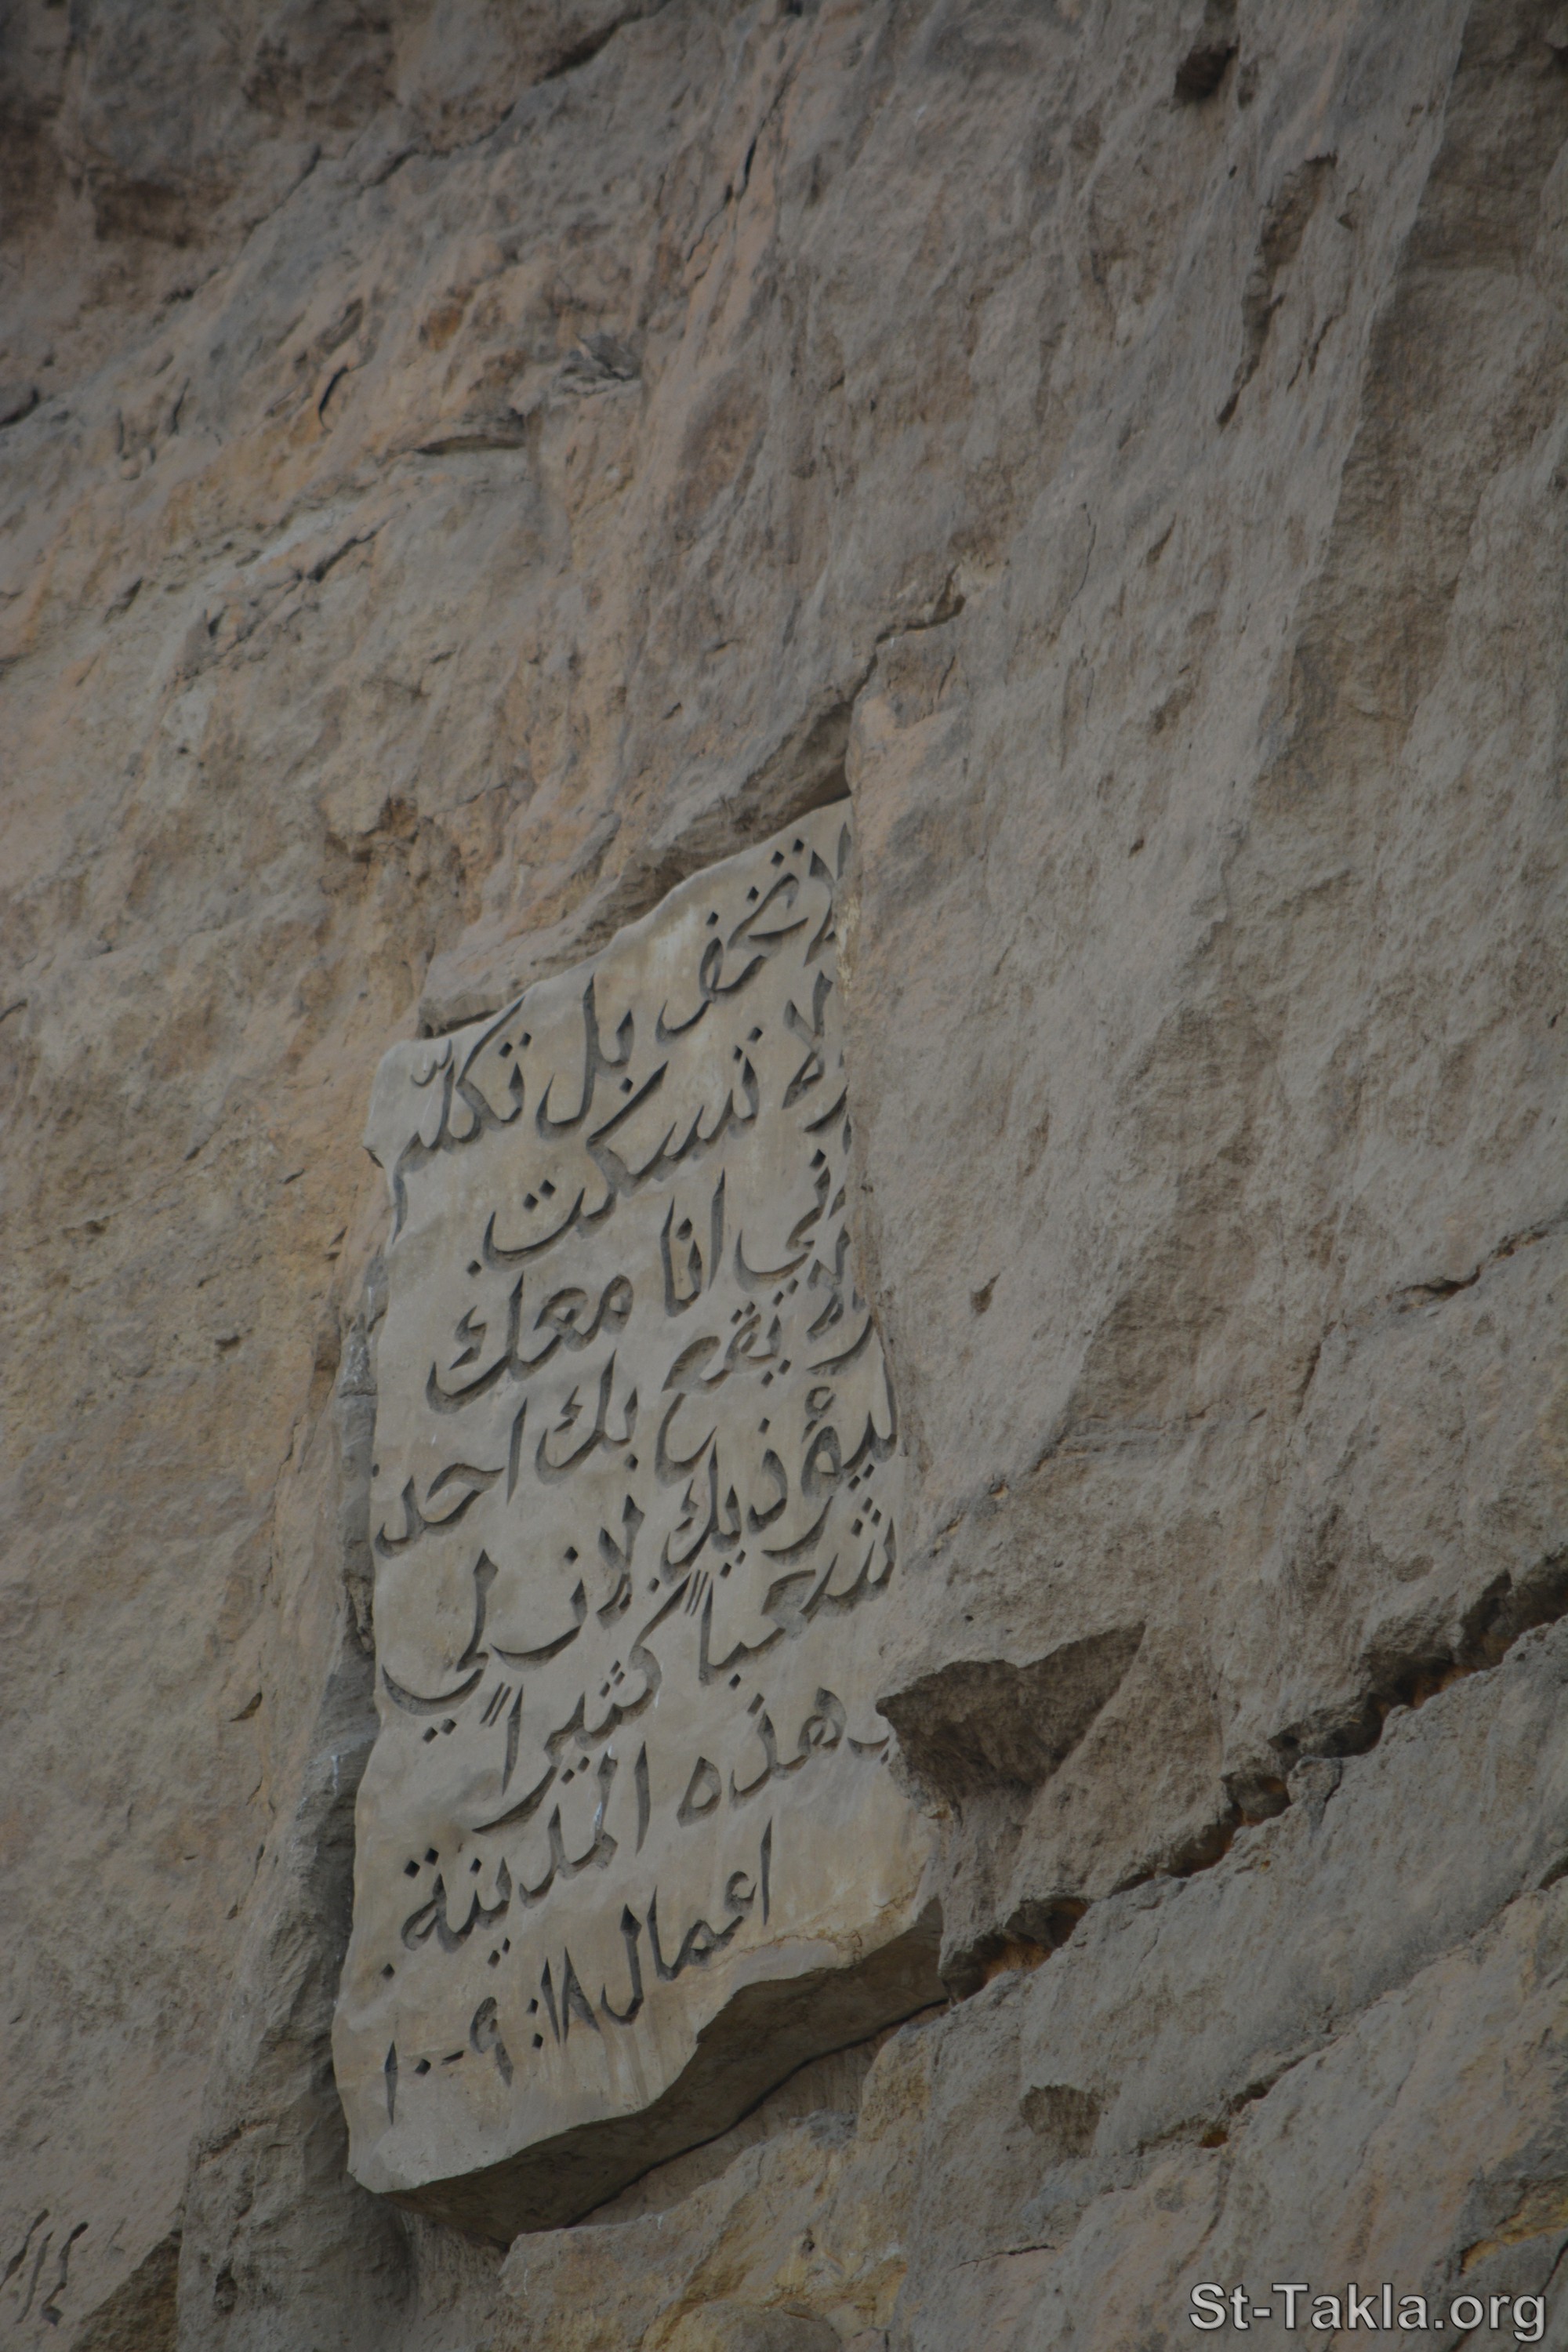 لا تخف بل تكلّم
ولا تسكت.
لاني انا معك
ولا يقع بك احد
ليؤذيك. لان لي
شعباً كثيراً
بهذه المدينة.
اعمال ١٨: ٩-١٠
St-Takla.org